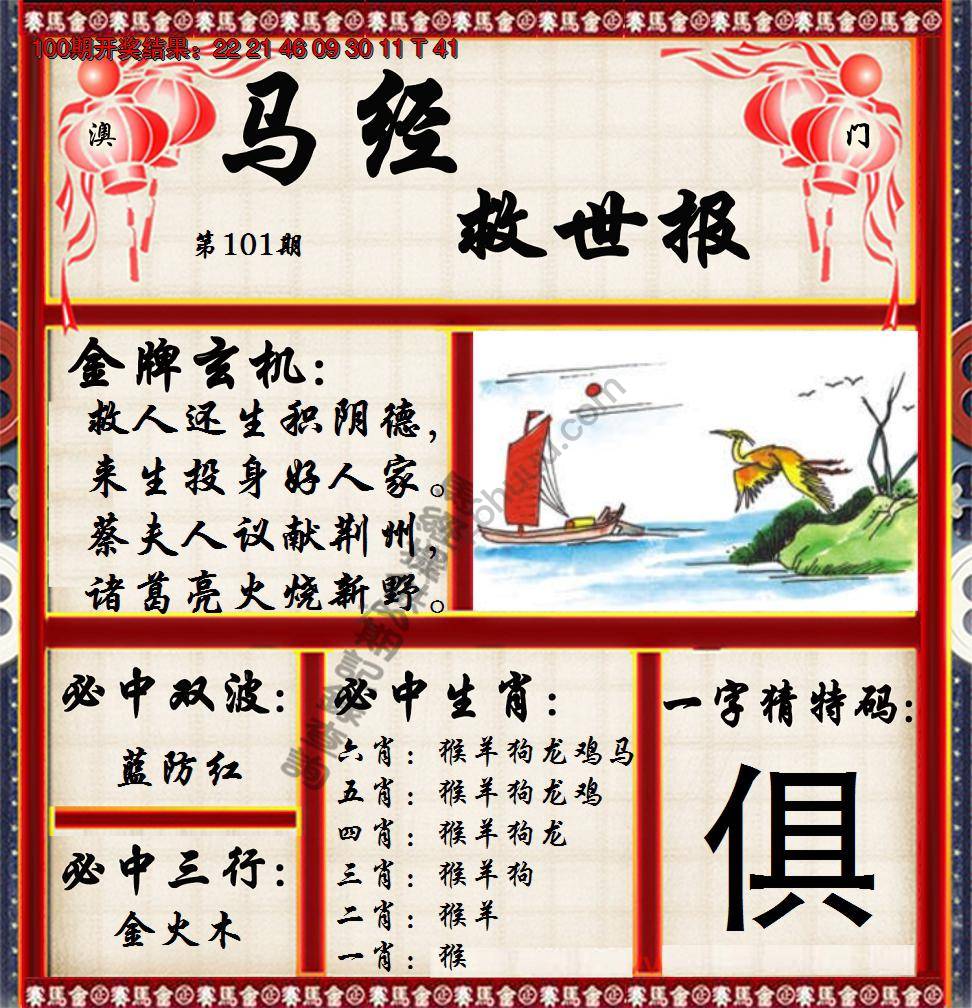 100期开奖结果：22 21 46 09 30 11 T 41
澳
门
马经
救世报
第101期
金牌玄机：
救人还生积阴德，
来生投身好人家。
蔡夫人议献荆州，
诸葛亮火烧新野。
必中双波：
蓝防红
必中三行：
金火木
必中生肖：
六肖：猴羊狗龙鸡马
五肖：猴羊狗龙鸡
四肖：猴羊狗龙
三肖：猴羊狗
二肖：猴羊
一肖：猴
一字猜特码：
俱